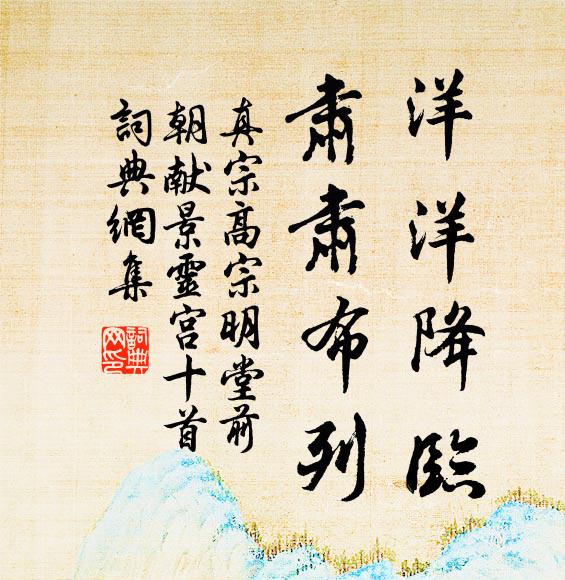 洋洋降臨
肅肅布列
真宗高宗明堂前
朝献景靈宮十首
詞典網集
詞典網印